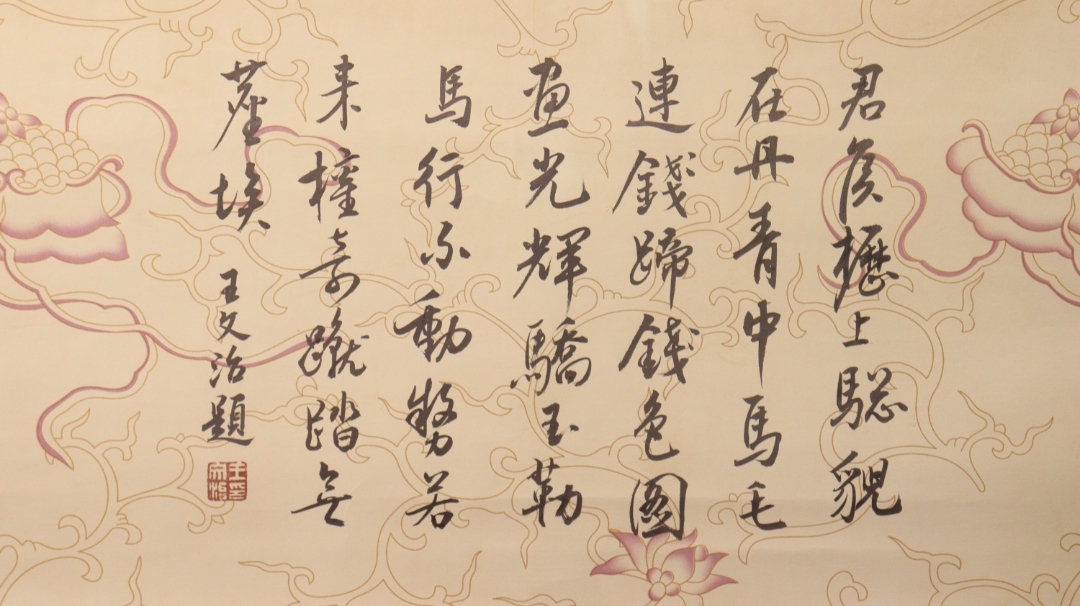 君侯櫪上驄貌
在丹青中馬毛
連錢蹄錢色圖
畫光輝驕玉勒
馬行不動勢若
来權奇蹴踏無
塵埃 王文治題